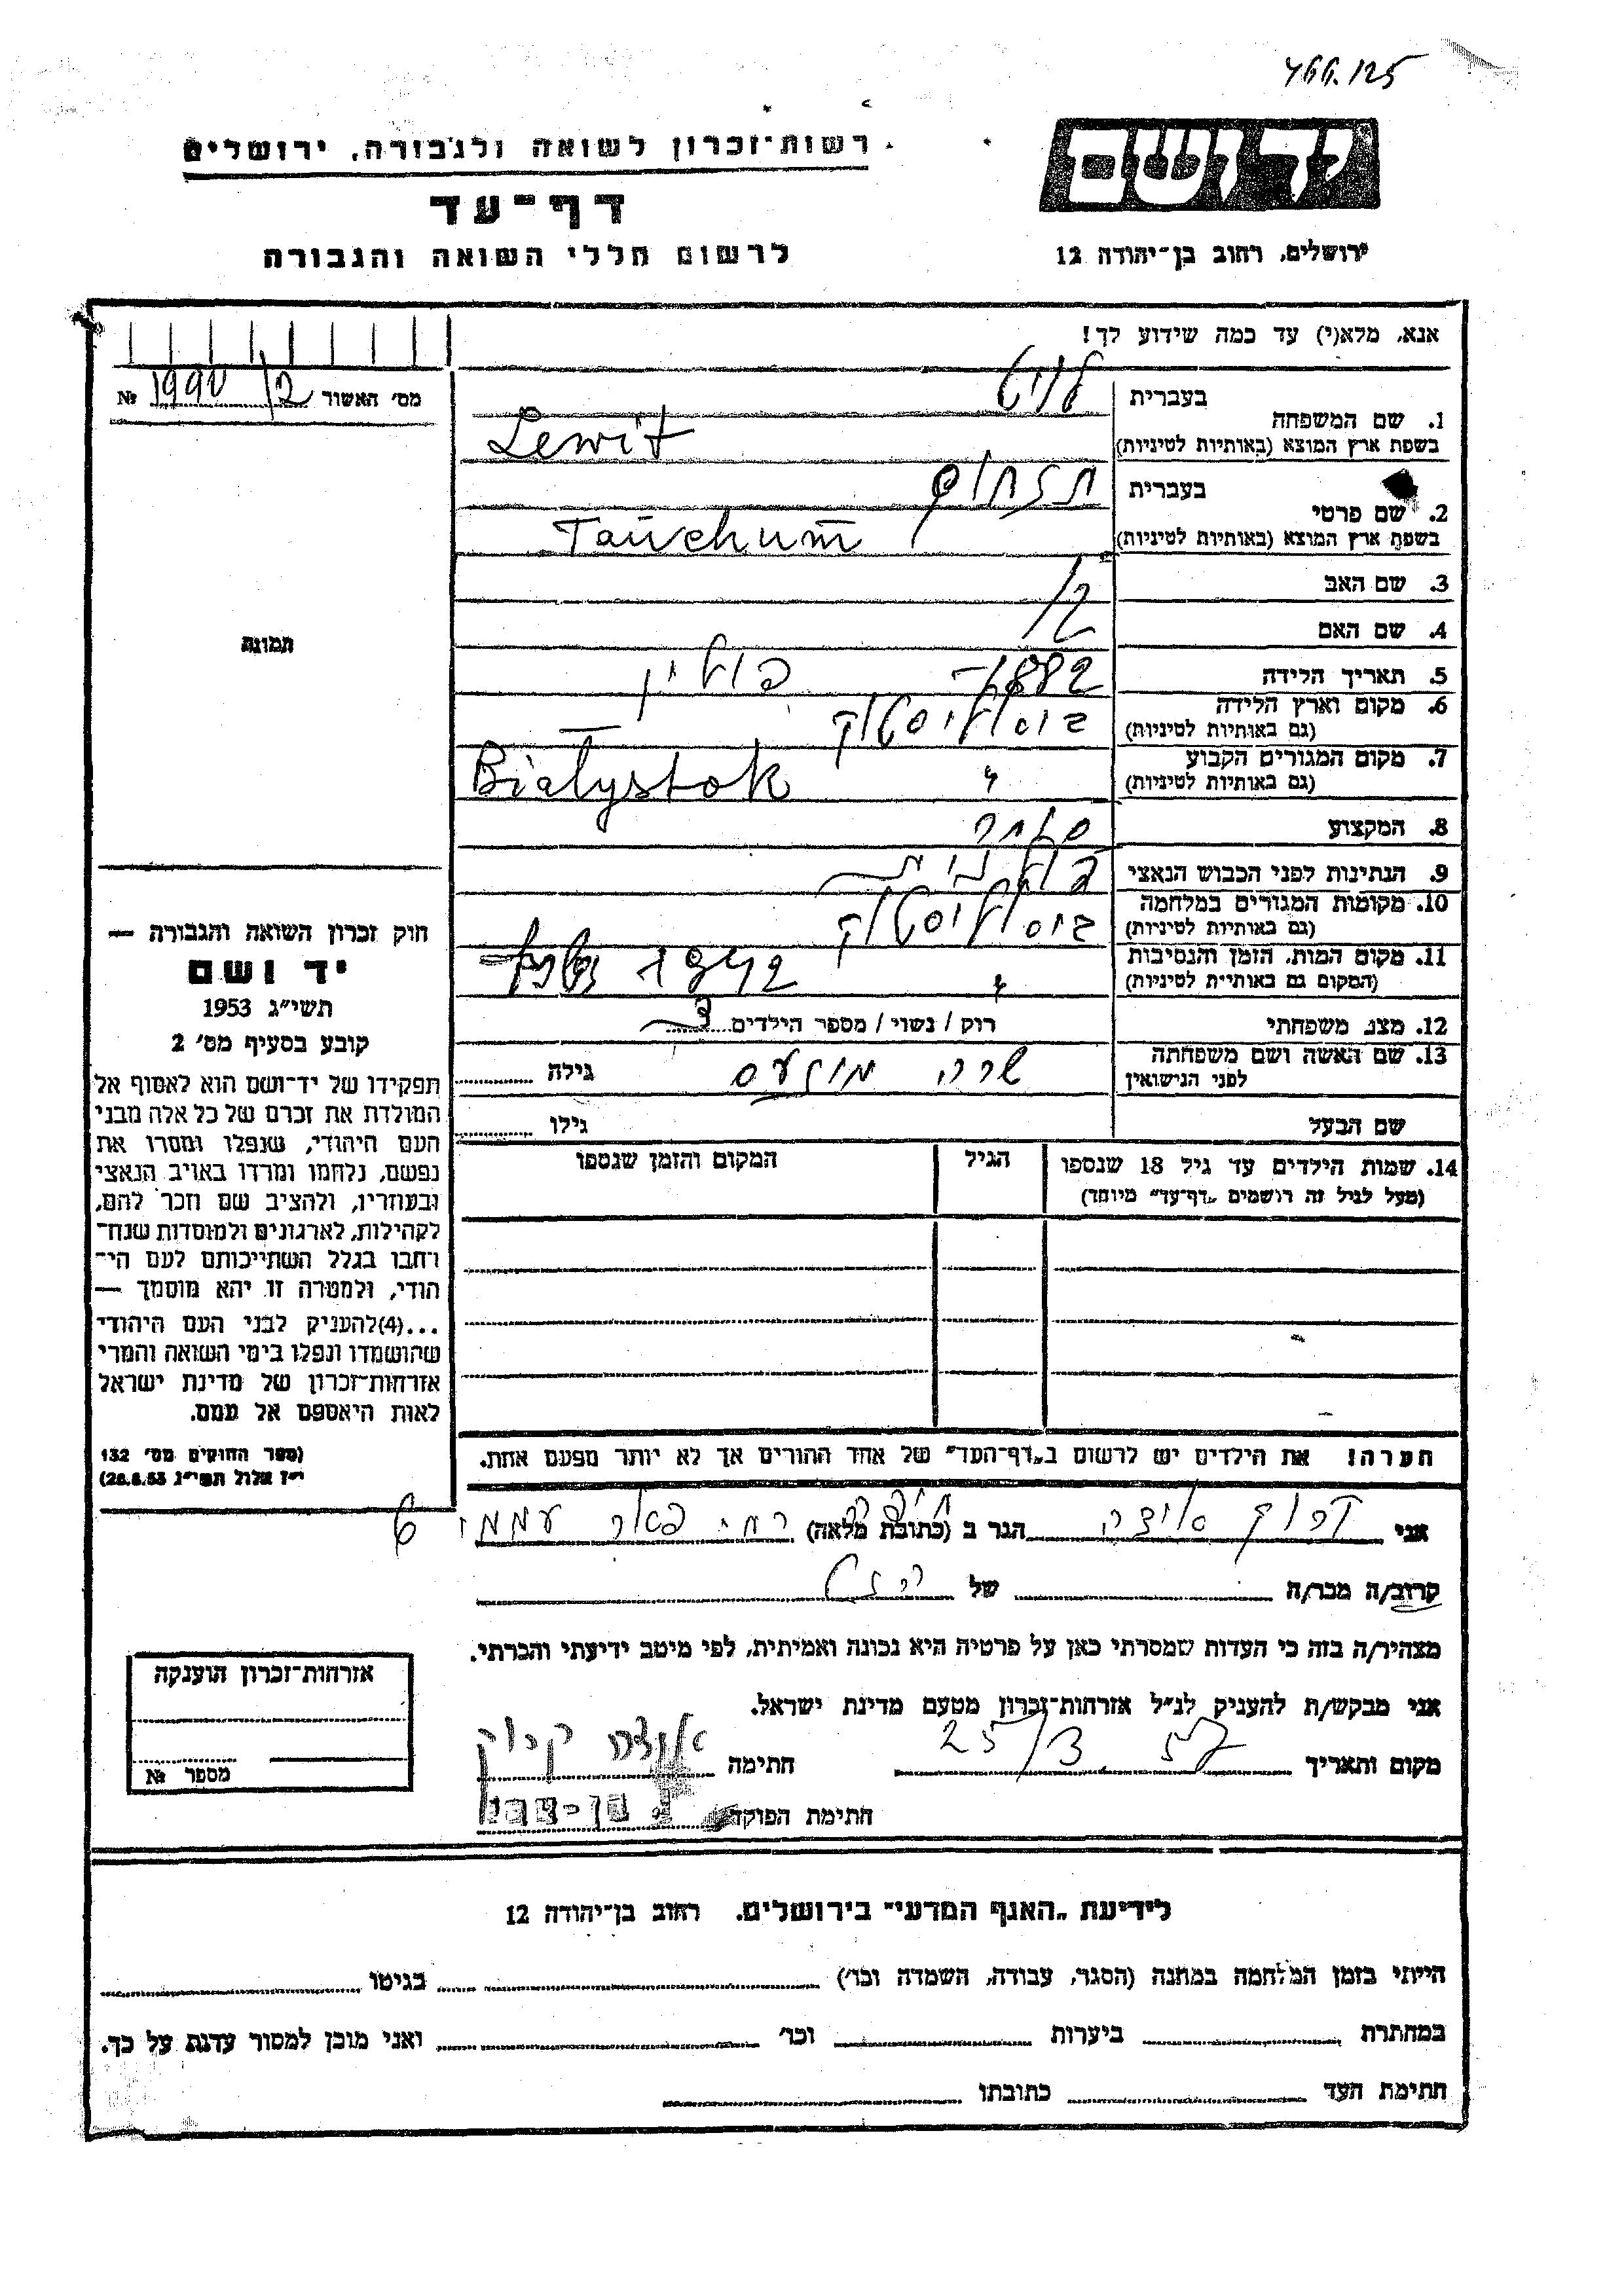 466.125
רשות־זכרון לשואה ולגבורה, ירושלים
יד ושם
דף־עד
לרשום חללי השואה והגבורה
ירושלים, רחוב בן־יהודה 12
אנא, מלא(י) עד כמה שידוע לך!
מס׳ האשור №
1. שם המשפחה
בעברית לויט
בשפת ארץ המוצא (באותיות לטיניות) Lewit
2. שם פרטי
בעברית תנחום
בשפת ארץ המוצא (באותיות לטיניות) Tanchum
3. שם האב
4. שם האם
5. תאריך הלידה 1882
6. מקום וארץ הלידה ביאליסטוק פולין
(גם באותיות לטיניות)
7. מקום המגורים הקבוע " Bialystok
(גם באותיות לטיניות)
8. המקצוע סוחר
9. הנתינות לפני הכבוש הנאצי פולנית
10. מקומות המגורים במלחמה ביאליסטוק
(גם באותיות לטיניות)
11. מקום המות, הזמן והנסיבות " 1942
(המקום גם באותיות לטיניות)
12. מצב משפחתי רוק / נשוי / מספר הילדים 3
13. שם האשה ושם משפחתה שרה גילה
לפני הנישואין
שם הבעל גילו
14. שמות הילדים עד גיל 18 שנספו הגיל המקום והזמן שנספו
(מעל לגיל זה רושמים „דף־עד״ מיוחד)
תמונה
חוק זכרון השואה והגבורה —
יד ושם
תשי״ג 1953
קובע בסעיף מס׳ 2
תפקידו של יד־ושם הוא לאסוף אל
המולדת את זכרם של כל אלה מבני
העם היהודי, שנפלו ומסרו את
נפשם, נלחמו ומרדו באויב הנאצי
ובעוזריו, ולהציב שם וזכר להם,
לקהילות, לארגונים ולמוסדות שנח־
רבו בגלל השתייכותם לעם הי־
הודי, ולמטרה זו יהא מוסמך —
...(4) להעניק לבני העם היהודי
שהושמדו ונפלו בימי השואה והמרי
אזרחות־זכרון של מדינת ישראל
לאות היאספם אל עמם.
(ספר החוקים מס׳ 132
י״ז אלול תשי״ג 28.8.53)
הערה! את הילדים יש לרשום ב„דף־העד״ של אחד ההורים אך לא יותר מפעם אחת.
אני הגר ב (כתובת מלאה) חיפה רח׳ 6
קרוב/ה מכר/ה של
מצהיר/ה בזה כי העדות שמסרתי כאן על פרטיה היא נכונה ואמיתית, לפי מיטב ידיעתי והכרתי.
אני מבקש/ת להעניק לנ״ל אזרחות־זכרון מטעם מדינת ישראל.
מקום ותאריך 25/3 57 חתימה
חתימת הפוקד
אזרחות־זכרון הוענקה
מספר №
לידיעת „האגף המדעי״ בירושלים, רחוב בן־יהודה 12
הייתי בזמן המלחמה במחנה (הסגר, עבודה, השמדה וכו׳) בגיטו
במחתרת ביערות וכו׳ ואני מוכן למסור עדות על כך.
חתימת העד כתובתו